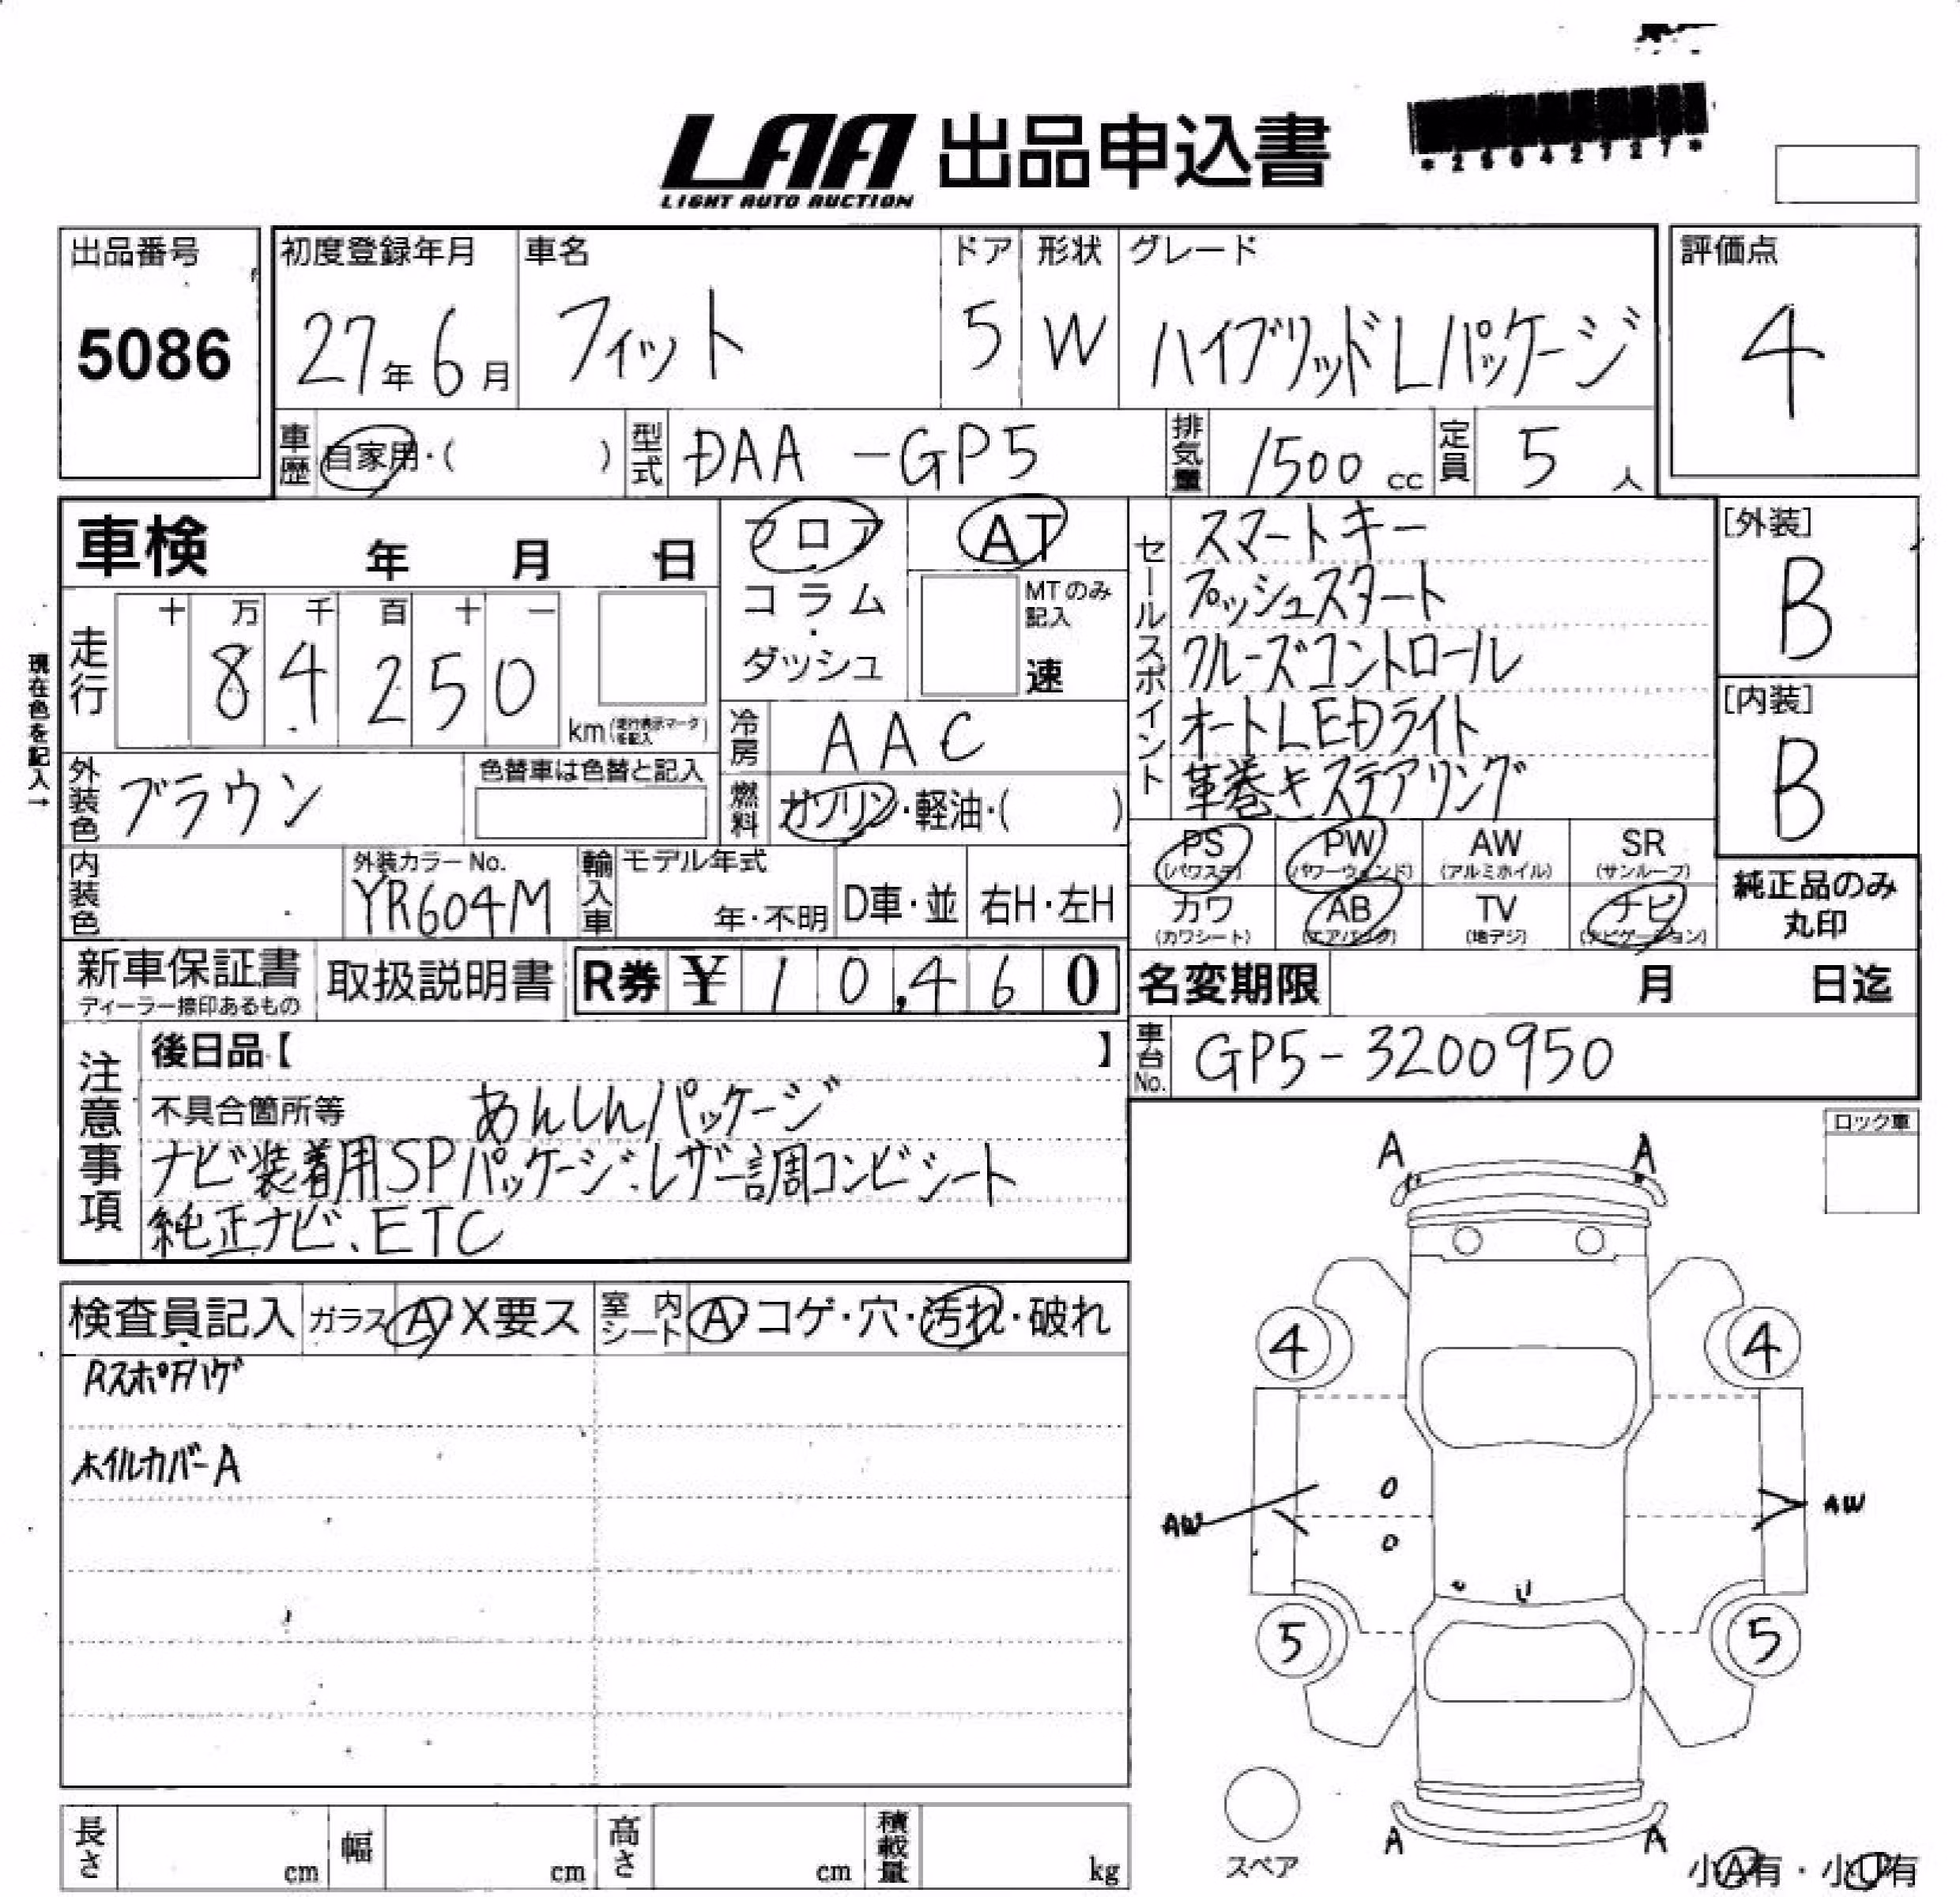 *26042727*
LAA 出品申込書
LIGHT AUTO AUCTION
出品番号 初度登録年月 車名 ドア 形状 グレード 評価点
5086 27年 6月 フィット 5 W ハイブリッドLパッケージ 4
車歴 自家用・( ) 型式 DAA-GP5 排気量 1500 cc 定員 5 人
車検 年 月 日 フロア AT セールスポイント スマートキー [外装]
コラム・ MTのみ記入 プッシュスタート B
走行 十 万 千 百 十 一 ダッシュ 速 クルーズコントロール
84250 km(走行表示マークを記入) 冷房 AAC オートLEDライト [内装]
現在色を記入→
外装色 ブラウン 色替車は色替と記入 燃料 ガソリン・軽油・( ) 革巻きステアリング B
PS PW AW SR
(パワステ) (パワーウィンド) (アルミホイル) (サンルーフ)
内装色 外装カラーNo. 輸入車 モデル年式 カワ AB TV ナビ 純正品のみ
YR604M 年・不明 D車・並 右H・左H (カワシート) (エアバッグ) (地デジ) (ナビゲーション) 丸印
新車保証書 取扱説明書 R券 ¥10,460 名変期限 月 日迄
ディーラー捺印あるもの
注意事項 後日品【 】 車台No. GP5-3200950
不具合箇所等 あんしんパッケージ
ナビ装着用SPパッケージ、レザー調コンビシート
純正ナビ、ETC
ロック車
A A
検査員記入 ガラス A X要ス 室内シート A コゲ・穴・汚れ・破れ
RスポFハゲ
4 4
ホイルカバーA
AW AW
5 5
スペア
A A
長さ cm 幅 cm 高さ cm 積載量 kg
小A有・小U有